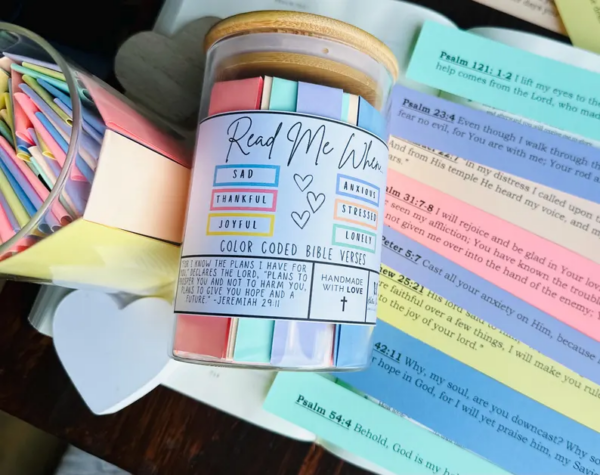 Read Me When
SAD
THANKFUL
JOYFUL
ANXIOUS
STRESSED
LONELY
COLOR CODED BIBLE VERSES
KNOW THE PLANS I HAVE FOR
DECLARES THE LORD, "PLANS TO
YOU AND NOT TO HARM YOU,
PLANS TO GIVE YOU HOPE AND A
FUTURE." -JEREMIAH 29:11
HANDMADE
WITH LOVE
Psalm 121: 1-2 I lift my eyes to the
help comes from the Lord, who made
Psalm 23:4 Even though I walk through th
fear no evil, for You are with me; Your rod a
in my distress I called upon t
And from His temple He heard my voice, and m
ears."
31:7-8 I will rejoice and be glad in Your lov
seen my affliction; You have known the troubl
not given me over into the hand of the enemy; Y
Peter 5:7 Cast all your anxiety on Him, because
25:21 His lord said
faithful over a few things, I will make you rul
to the joy of your lord."
42:11 Why, my soul, are you downcast? Why so
hope in God, for I will yet praise him, my Savio
Psalm 54:4 Behold, God is my h